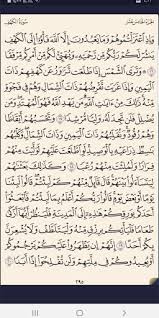 الجزء الخامس عشر
سورة الكهف
وَإِذِ ٱعۡتَزَلۡتُمُوهُمۡ وَمَا يَعۡبُدُونَ إِلَّا ٱللَّهَ فَأۡوُۥٓاْ إِلَى ٱلۡكَهۡفِ
يَنشُرۡ لَكُمۡ رَبُّكُم مِّن رَّحۡمَتِهِۦ وَيُهَيِّئۡ لَكُم مِّنۡ أَمۡرِكُم مِّرۡفَقٗا
۞ وَتَرَى ٱلشَّمۡسَ إِذَا طَلَعَت تَّزَٰوَرُ عَن كَهۡفِهِمۡ ذَاتَ
ٱلۡيَمِينِ وَإِذَا غَرَبَت تَّقۡرِضُهُمۡ ذَاتَ ٱلشِّمَالِ وَهُمۡ فِي فَجۡوَةٖ
مِّنۡهُۚ ذَٰلِكَ مِنۡ ءَايَٰتِ ٱللَّهِۗ مَن يَهۡدِ ٱللَّهُ فَهُوَ ٱلۡمُهۡتَدِۖ وَمَن يُضۡلِلۡ
فَلَن تَجِدَ لَهُۥ وَلِيّٗا مُّرۡشِدٗا ١٧ وَتَحۡسَبُهُمۡ أَيۡقَاظٗا وَهُمۡ
رُقُودٞۚ وَنُقَلِّبُهُمۡ ذَاتَ ٱلۡيَمِينِ وَذَاتَ ٱلشِّمَالِۖ وَكَلۡبُهُم
بَٰسِطٞ ذِرَاعَيۡهِ بِٱلۡوَصِيدِۚ لَوِ ٱطَّلَعۡتَ عَلَيۡهِمۡ لَوَلَّيۡتَ مِنۡهُمۡ
فِرَارٗا وَلَمُلِئۡتَ مِنۡهُمۡ رُعۡبٗا ١٨ وَكَذَٰلِكَ بَعَثۡنَٰهُمۡ
لِيَتَسَآءَلُواْ بَيۡنَهُمۡۚ قَالَ قَآئِلٞ مِّنۡهُمۡ كَمۡ لَبِثۡتُمۡۖ قَالُواْ لَبِثۡنَا
يَوۡمًا أَوۡ بَعۡضَ يَوۡمٖۚ قَالُواْ رَبُّكُمۡ أَعۡلَمُ بِمَا لَبِثۡتُمۡ فَٱبۡعَثُوٓاْ
أَحَدَكُم بِوَرِقِكُمۡ هَٰذِهِۦٓ إِلَى ٱلۡمَدِينَةِ فَلۡيَنظُرۡ أَيُّهَآ أَزۡكَىٰ
طَعَامٗا فَلۡيَأۡتِكُم بِرِزۡقٖ مِّنۡهُ وَلۡيَتَلَطَّفۡ وَلَا يُشۡعِرَنَّ
بِكُمۡ أَحَدًا ١٩ إِنَّهُمۡ إِن يَظۡهَرُواْ عَلَيۡكُمۡ يَرۡجُمُوكُمۡ
أَوۡ يُعِيدُوكُمۡ فِي مِلَّتِهِمۡ وَلَن تُفۡلِحُوٓاْ إِذًا أَبَدٗا ٢٠
٢٩٥